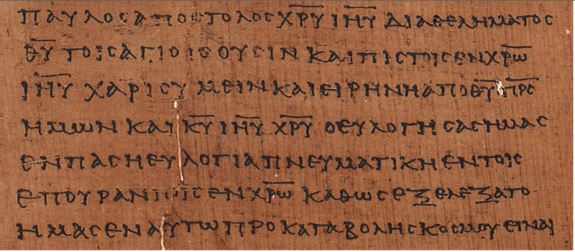 ΠΑΥΛΟΣ ΑΠΟΣΤΟΛΟΣ ΧΡΥ ΙΗΥ ΔΙΑ ΘΕΛΗΜΑΤΟΣ
ΘΥ ΤΟΙΣ ΑΓΙΟΙΣ ΟΥΣΙΝ ΚΑΙ ΠΙΣΤΟΙΣ ΕΝ ΧΡΩ
ΙΗΥ ΧΑΡΙΣ ΥΜΕΙΝ ΚΑΙ ΕΙΡΗΝΗ ΑΠΟ ΘΥ ΠΡΣ
ΗΜΩΝ ΚΑΙ ΚΥ ΙΗΥ ΧΡΥ Ο ΕΥΛΟΓΗΣΑΣ ΗΜΑΣ
ΕΝ ΠΑΣΗ ΕΥΛΟΓΙΑ ΠΝΕΥΜΑΤΙΚΗ ΕΝ ΤΟΙΣ
ΕΠΟΥΡΑΝΙΟΙΣ ΕΝ ΧΡΩ ΚΑΘΩΣ ΕΞΕΛΕΞΑΤΟ
ΗΜΑΣ ΕΝ ΑΥΤΩ ΠΡΟ ΚΑΤΑΒΟΛΗΣ ΚΟΣΜΟΥ ΕΙΝΑΙ